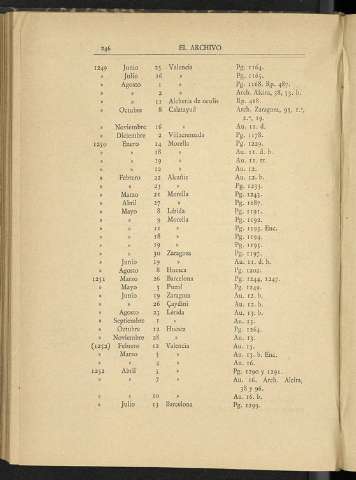 246 EL ARCHIVO
1249 Junio 25 Valencia Pg. 1164.
» Julio 16 » Pg. 1165.
» Agosto 1 » Pg. 1168. Rp. 487.
» » 2 » Arch. Alcira, 38, 53. b.
» » 11 Alcheria de oculis Rp. 488.
» Octubre 8 Calatayud Arch. Zaragoza, 93, 1.º,
2.º, 19.
» Noviembre 16 » Au. 11. d.
» Diciembre 2 Pg. 1178.
1250 Enero 14 Morella Pg. 1229.
» » 18 » Au. 11. d. b.
» » 19 » Au. 11. tt.
» » 12 » Au. 12.
» Febrero 22 Alcañiz Au. 12. b.
» » 23 » Pg. 1233.
» Marzo 21 Morella Pg. 1243.
» Abril 27 » Pg. 1187.
» Mayo 8 Lérida Pg. 1191.
» » 9 Morella Pg. 1192.
» » 11 » Pg. 1193. Enc.
» » 18 » Pg. 1194.
» » 19 » Pg. 1195.
» » 30 Zaragoza Pg. 1197.
» Junio 19 » Au. 11. d. b.
» Agosto 8 Huesca Pg. 1202.
1251 Marzo 26 Barcelona Pg. 1244, 1247.
» Mayo 5 Puzol Pg. 1249.
» Junio 19 Zaragoza Au. 12. b.
» » 26 Çaydini Au. 12. b.
» Agosto 23 Lérida Au. 13. b.
» Septiembre 1 » Au. 13.
» Octubre 12 Huesca Pg. 1264.
» Noviembre 28 » Au. 13.
(1252) Febrero 12 Valencia Au. 13.
» Marzo 3 » Au. 13. b. Enc.
» » 4 » Au. 16.
1252 Abril 3 » Pg. 1290 y 1291.
» » 7 » Au. 16. Arch. Alcira,
38 y 96.
» » 10 » Au. 16. b.
» Julio 13 Barcelona Pg. 1293.